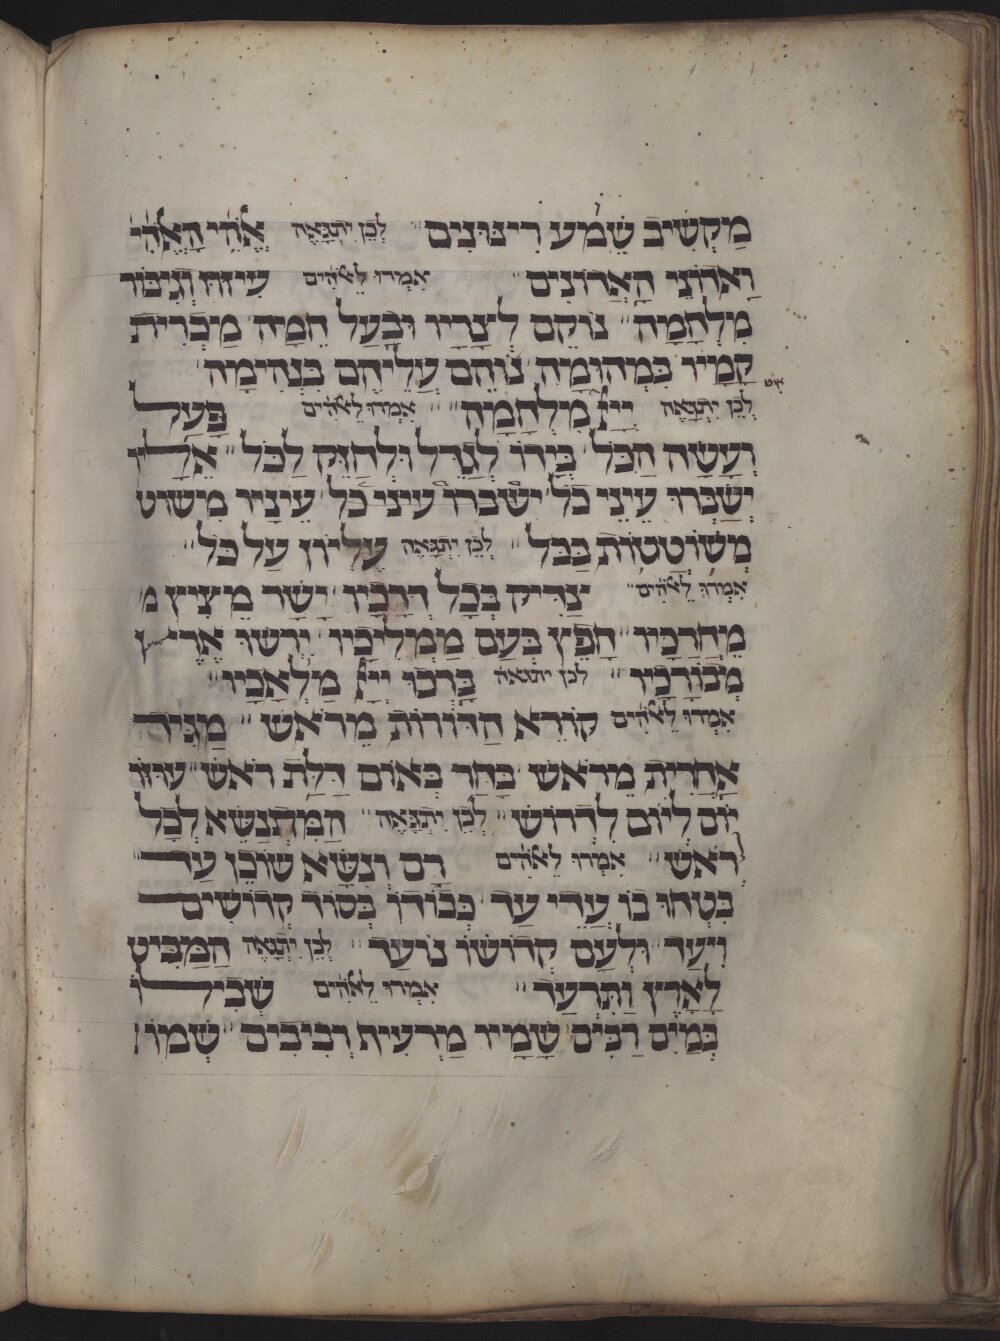 מַקְשִׁיב שֶׁמַע רִינּוּנִים לָכֵן יִתְגָּאֶה אֱלֹהֵי הָאֱלֹהִי
וַאֲדֹנֵי הָאֲדוֹנִים אִמְרוּ לֵאלֹהִים עִיזּוּז וְגִיבּוֹר
מִלְחָמָה נוֹקֵם לְצָרָיו וּבַעַל חֵמָה מַכְרִית
קָמָיו בִּמְהוּמָה נוֹהֵם עֲלֵיהֶם בִּנְהִימָה
לָכֵן יִתְגָּאֶה יְיָ מִלְחָמָה אִמְרוּ לֵאלֹהִים פָּעַל
וְעָשָׂה הַכֹּל בְּיָדוֹ לְגַדֵּל וּלְחַזֵּק לַכֹּל אֵלָיו
יְשַׂבְּרוּ עֵינֵי כֹל ישברו עיני כל עֵינָיו מְשׁוֹט
מְשׁוֹטְטוֹת בַּכֹּל לָכֵן יִתְגָּאֶה עֶלְיוֹן עַל כֹּל
אִמְרוּ לֵאלֹהִים צַדִּיק בְּכָל דְּרָכָיו יָשָׁר מֵצִיץ מ
מֵחֲרַכָּיו חָפֵץ בְּעַם מַמְלִיכָיו יִרְשׁוּ אֶרֶץ
מְבוֹרָכָיו לכן יתגאה בָּרְכוּ יְיָ מַלְאָכָיו
אִמְרוּ לֵאלֹהִים קוֹרֵא הַדּוֹרוֹת מֵרֹאשׁ מַגִּיד
אַחֲרִית מֵרֹאשׁ בָּחַר בְּאוֹם דַּלַּת רֹאשׁ
יוֹם לְיוֹם לִדְרוֹשׁ לָכֵן יִתְגָּאֶה הַמִּתְנַשֵּׂא לְכָל
רֹאשׁ אִמְרוּ לֵאלֹהִים רָם וְנִשָּׂא שׁוֹכֵן עַד
בִּטְחוּ בוֹ עֲדֵי עַד כְּבוֹדוֹ בְּסוֹד קְדוֹשִׁים
וִיעַד וּלְעַם קְדוֹשׁוֹ נוֹעַד לָכֵן יִתְגָּאֶה הַמַּבִּיט
לָאָרֶץ וַתִּרְעַד אִמְרוּ לֵאלֹהִים שְׁבִילוֹ
בְּמַיִם רַבִּים שָׁמָיו מַרְעִיף רְבִיבִים שְׁמוֹ